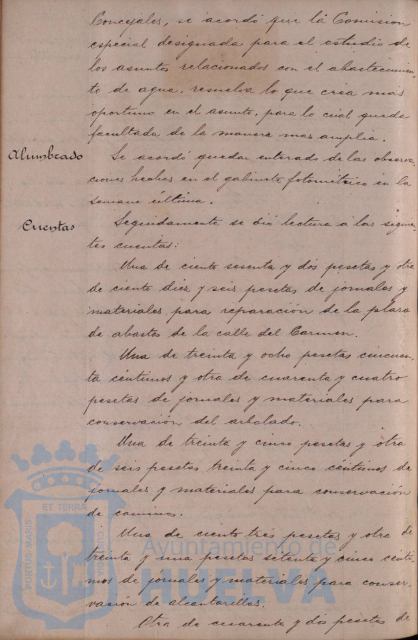 Concejales, se acordó que la Comision
especial designada para el estudio de
los asuntos relacionados con el abastecimien-
to de agua, resuelva lo que crea más
oportuno en el asunto, para lo cual queda
facultada de la manera mas amplia.
Alumbrado
Se acordó quedar enterado de las observa-
ciones hechas en el gabinete fotométrico en la
semana última.
Cuentas
Seguidamente se dió lectura a las siguien-
tes cuentas:
Una de ciento sesenta y dos pesetas y otra
de ciento diez y seis pesetas de jornales y
materiales para reparación de la plaza
de abastos de la calle del Carmen.
Una de treinta y ocho pesetas cincuen-
ta céntimos y otra de cuarenta y cuatro
pesetas de jornales y materiales para
conservación del arbolado.
Una de treinta y cinco pesetas y otra
de seis pesetas treinta y cinco céntimos de
jornales y materiales para conservación
de caminos.
Una de ciento tres pesetas y otra de
treinta y una pesetas setenta y cinco cénti-
mos de jornales y materiales para conser-
vación de alcantarillas.
Otra de cuarenta y dos pesetas de
Ayuntamiento de
HUELVA
PORTUS MARIS ET TERRAE CUSTODIA